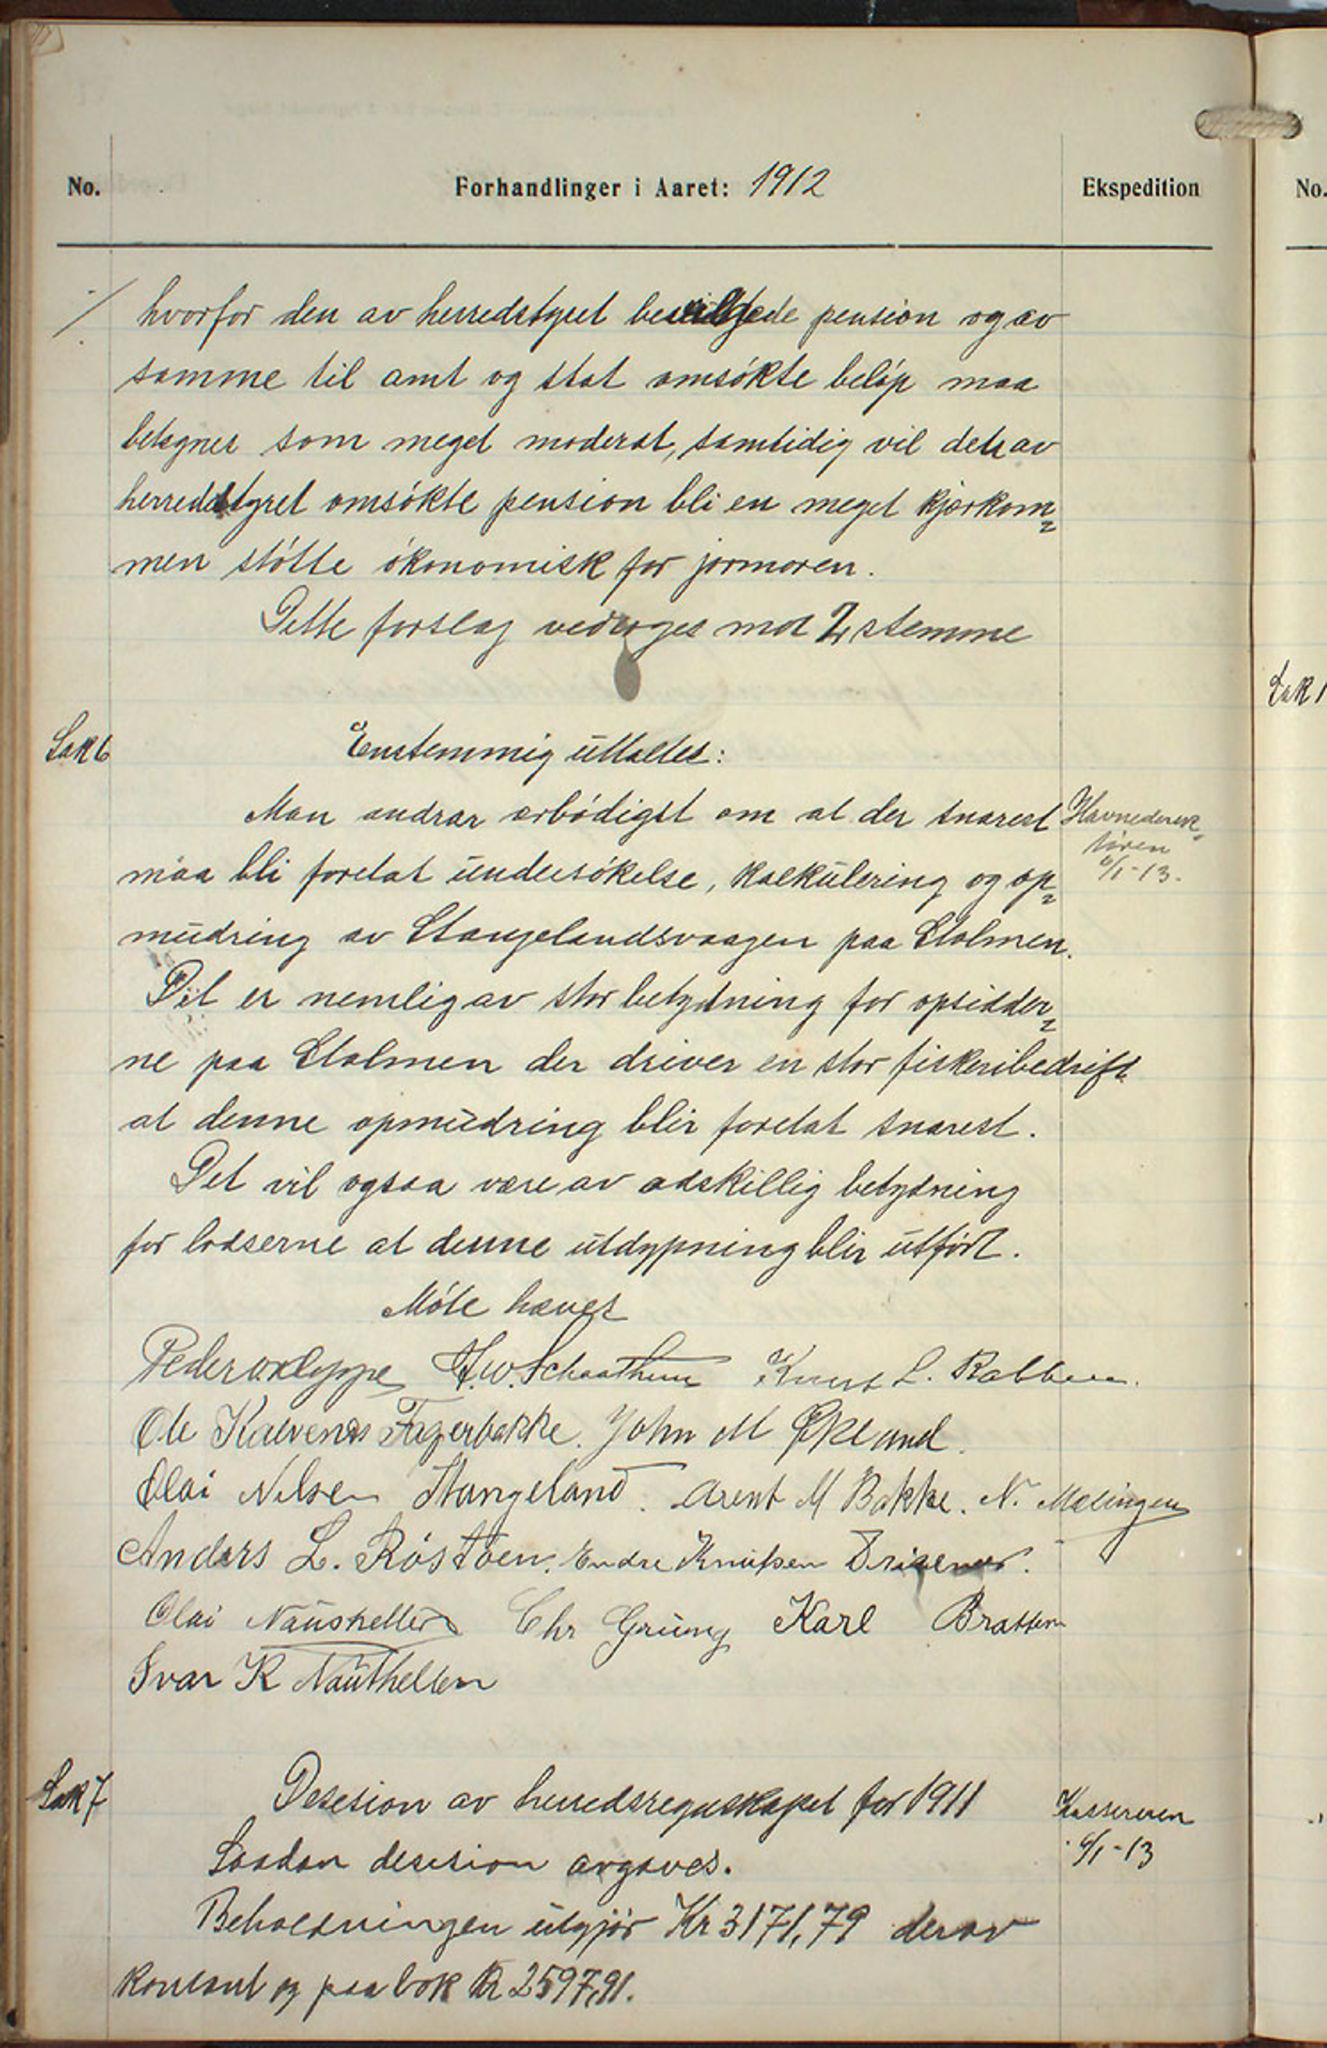 No. Forhandlinger i Aaret: 1912 Ekspedition No.
hvorfor den av herredstyret bevilgede pension og av
samme til amt og stat omsökte belöp maa
betegnes som meget moderat, samtidig vil det av
herredstyret omsökte pension bli en meget kjærkom=
men stötte ökonomisk for jormoren.
Dette forslag vedtoges mot 2 stemme
Sak 6 Enstemmig uttaltes:
Man andrar ærbödigst om at der snarest Havnedirek=
tören
maa bli foretat undersökelse, kalkulering og op= 6/1-13.
mudring av Stangelandsvaagen paa Stolmen.
Det er nemlig av stor betydning for opsidder=
ne paa Stolmen der driver en stor fiskeribedrift
at denne opmudring blir foretat snarest.
Det vil ogsaa være av adskillig betydning
for lodserne at denne utdypning blir utfört.
Möte hæves
Peder Oxlyppe H.W. Schaathun Knut L. Rabben.
Ole Kalvenes Fagerbakke. John M Økland.
Olai Nilsen Stangeland. Arent M Bakke. N. Mælingen
Anders L. Röstöen. Endre Knutsen Drisenes.
Olai Naustheller Chr Grung Karl Bratten
Ivar K Nauthellen
Sak 7 Desesion av herredsregnskapet for 1911 Kassereren
Saadan desesion avgaves. 6/1-13
Beholdningen utgjör Kr 3171,79 derav
kontant og paa bok Kr 2597,91.
Sak 1